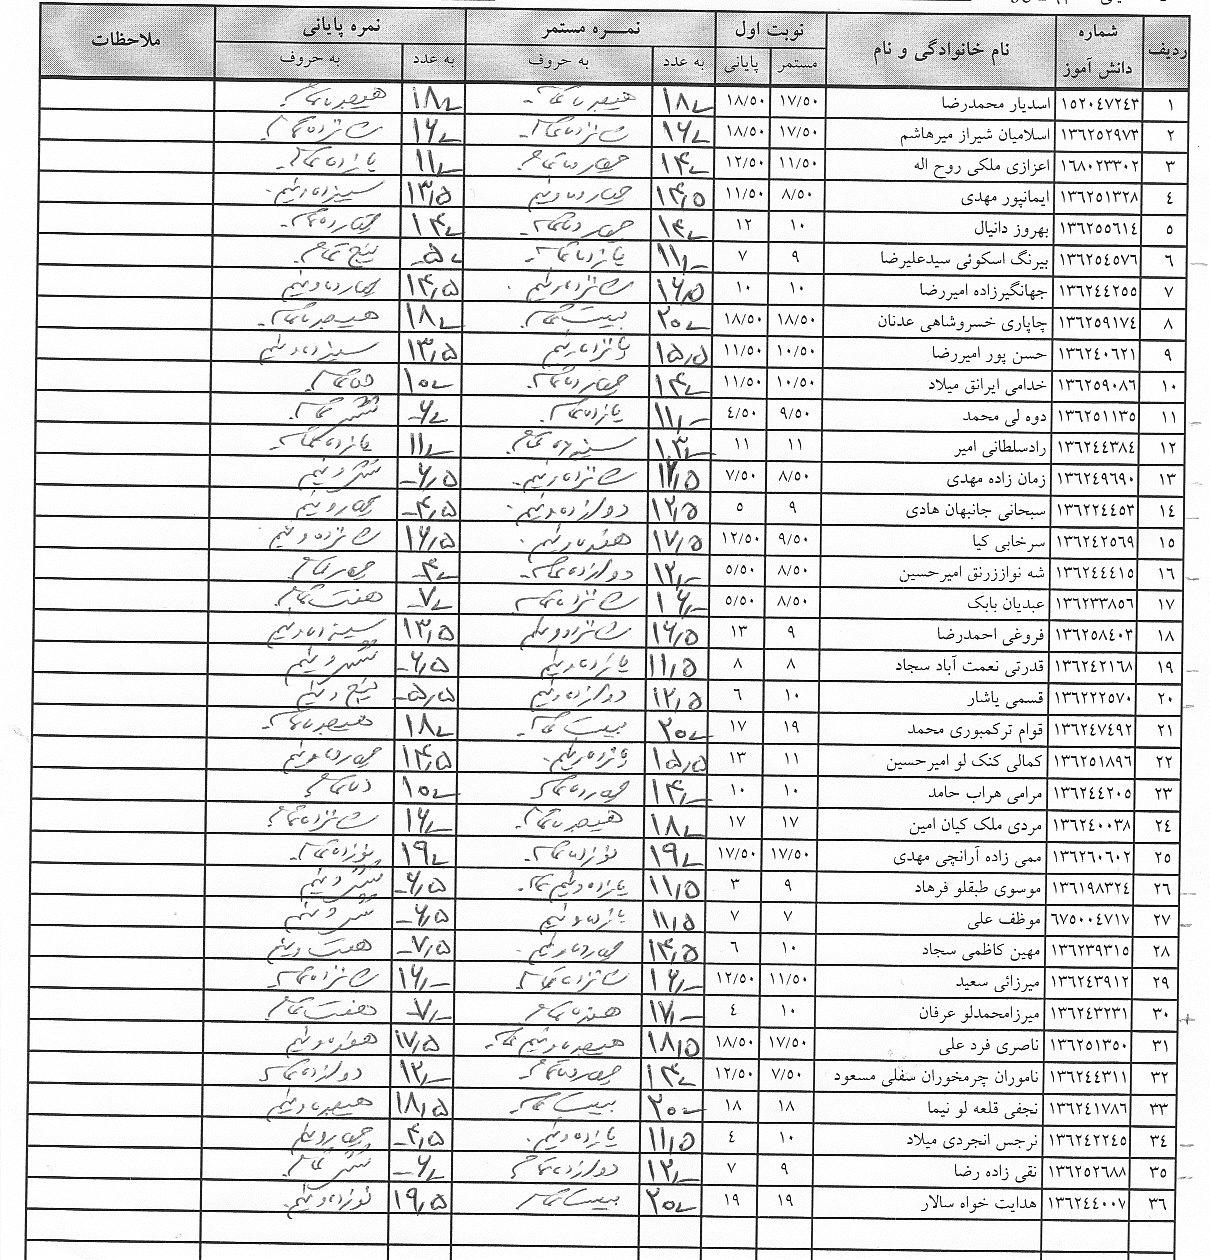 ردیف شماره دانش آموز نام خانوادگی و نام نوبت اول نمـــره مستمر نمره پایانی ملاحظات
مستمر پایانی به عدد به حروف به عدد به حروف
۱ ۱۵۲۰۴۷۲۴۳ اسدیار محمدرضا ۱۷/۵۰ ۱۸/۵۰ ۱۸ هیجده تمام ۱۸ هیجده تمام
۲ ۱۳۶۲۵۲۹۷۳ اسلامیان شیراز میرهاشم ۱۷/۵۰ ۱۸/۵۰ ۱۶ شانزده تمام ۱۶ شانزده تمام
۳ ۱۶۸۰۲۳۳۰۲ اعزازی ملکی روح اله ۱۱/۵۰ ۱۲/۵۰ ۱۴ چهارده تمام ۱۱ یازده تمام
۴ ۱۳۶۲۵۱۳۲۸ ایمانپور مهدی ۸/۵۰ ۱۱/۵۰ ۱۴٫۵ چهارده و نیم ۱۳٫۵ سیزده و نیم
۵ ۱۳۶۲۵۵۶۱۴ بهروز دانیال ۱۰ ۱۲ ۱۴ چهارده تمام ۱۴ چهارده تمام
۶ ۱۳۶۲۵۴۵۷۶ بیرنگ اسکوئی سیدعلیرضا ۹ ۷ ۱۱ یازده تمام ۵ پنج تمام
۷ ۱۳۶۲۴۴۲۵۵ جهانگیرزاده امیررضا ۱۰ ۱۰ ۱۶٫۵ شانزده و نیم ۱۴٫۵ چهارده و نیم
۸ ۱۳۶۲۵۹۱۷۴ چاپاری خسروشاهی عدنان ۱۸/۵۰ ۱۸/۵۰ ۲۰ بیست تمام ۱۸ هیجده تمام
۹ ۱۳۶۲۴۰۶۲۱ حسن پور امیررضا ۱۰/۵۰ ۱۱/۵۰ ۱۵٫۵ پانزده و نیم ۱۳٫۵ سیزده و نیم
۱۰ ۱۳۶۲۵۹۰۸۶ خدامی ایرانق میلاد ۱۰/۵۰ ۱۱/۵۰ ۱۴ چهارده تمام ۱۰ ده تمام
۱۱ ۱۳۶۲۵۱۱۳۵ دوه لی محمد ۹/۵۰ ۴/۵۰ ۱۱ یازده تمام ۶ شش تمام
۱۲ ۱۳۶۲۴۴۳۸۴ رادسلطانی امیر ۱۱ ۱۱ ۱۳ سیزده تمام ۱۱ یازده تمام
۱۳ ۱۳۶۲۴۹۶۹۰ زمان زاده مهدی ۸/۵۰ ۷/۵۰ شانزده و نیم ۶٫۵ شش و نیم
۱۴ ۱۳۶۲۲۴۴۵۳ سبحانی جانبهان هادی ۹ ۵ ۱۲٫۵ دوازده و نیم ۴٫۵ چهار و نیم
۱۵ ۱۳۶۲۴۲۵۶۹ سرخابی کیا ۹/۵۰ ۱۲/۵۰ ۱۷٫۵ هفده و نیم ۱۶٫۵ شانزده و نیم
۱۶ ۱۳۶۲۴۴۴۱۵ شه نواززرنق امیرحسین ۸/۵۰ ۵/۵۰ ۱۲ دوازده تمام ۴ چهار تمام
۱۷ ۱۳۶۲۳۳۸۵۶ عبدیان بابک ۸/۵۰ ۵/۵۰ ۱۶ شانزده تمام ۷ هفت تمام
۱۸ ۱۳۶۲۵۸۴۰۳ فروغی احمدرضا ۹ ۱۳ ۱۶٫۵ شانزده و نیم ۱۳٫۵ سیزده و نیم
۱۹ ۱۳۶۲۴۲۱۶۸ قدرتی نعمت آباد سجاد ۸ ۸ ۱۱٫۵ یازده و نیم ۶٫۵ شش و نیم
۲۰ ۱۳۶۲۲۲۵۷۰ قسمی یاشار ۱۰ ۶ ۱۲٫۵ دوازده و نیم ۵٫۵ پنج و نیم
۲۱ ۱۳۶۲۴۷۴۹۲ قوام ترکمبوری محمد ۱۹ ۱۷ ۲۰ بیست تمام ۱۸ هیجده تمام
۲۲ ۱۳۶۲۵۱۸۹۶ کمالی کنک لو امیرحسین ۱۱ ۱۳ ۱۵٫۵ پانزده و نیم ۱۴٫۵ چهارده و نیم
۲۳ ۱۳۶۲۴۴۲۰۵ مرامی هراب حامد ۱۰ ۱۰ ۱۴ چهارده تمام ۱۰ ده تمام
۲۴ ۱۳۶۲۴۰۰۳۸ مردی ملک کیان امین ۱۷ ۱۷ ۱۸ هیجده تمام ۱۶ شانزده تمام
۲۵ ۱۳۶۲۶۰۶۰۲ ممی زاده آرانچی مهدی ۱۷/۵۰ ۱۷/۵۰ ۱۹ نوزده تمام ۱۹ نوزده تمام
۲۶ ۱۳۶۱۹۸۳۲۴ موسوی طبقلو فرهاد ۹ ۳ ۱۱٫۵ یازده و نیم تمام ۶٫۵ شش و نیم
۲۷ ۶۷۵۰۰۴۷۱۷ موظف علی ۷ ۷ ۱۱٫۵ یازده و نیم ۶٫۵ شش و نیم
۲۸ ۱۳۶۲۳۹۳۱۵ مهین کاظمی سجاد ۱۰ ۶ ۱۴٫۵ چهارده و نیم ۷٫۵ هفت و نیم
۲۹ ۱۳۶۲۴۳۹۱۲ میرزائی سعید ۱۱/۵۰ ۱۲/۵۰ ۱۶ شانزده تمام ۱۶ شانزده تمام
۳۰ ۱۳۶۲۴۳۲۳۱ میرزامحمدلو عرفان ۱۰ ۴ ۱۷ هفده تمام ۷ هفت تمام
۳۱ ۱۳۶۲۵۱۳۵۰ ناصری فرد علی ۱۷/۵۰ ۱۸/۵۰ ۱۸٫۵ هیجده و نیم تمام ۱۷٫۵ هفده و نیم
۳۲ ۱۳۶۲۴۴۳۱۱ ناموران چرمخوران سفلی مسعود ۷/۵۰ ۱۲/۵۰ ۱۴ چهارده تمام ۱۲ دوازده تمام
۳۳ ۱۳۶۲۴۱۷۸۶ نجفی قلعه لو نیما ۱۸ ۱۸ ۲۰ بیست تمام ۱۸٫۵ هیجده و نیم
۳۴ ۱۳۶۲۴۲۲۴۵ نرجس انجردی میلاد ۱۰ ۴ ۱۱٫۵ یازده و نیم ۴٫۵ چهار و نیم
۳۵ ۱۳۶۲۵۲۶۸۸ نقی زاده رضا ۹ ۷ ۱۲ دوازده تمام ۶ شش تمام
۳۶ ۱۳۶۲۴۴۰۰۷ هدایت خواه سالار ۱۹ ۱۹ ۲۰ بیست تمام ۱۹٫۵ نوزده و نیم